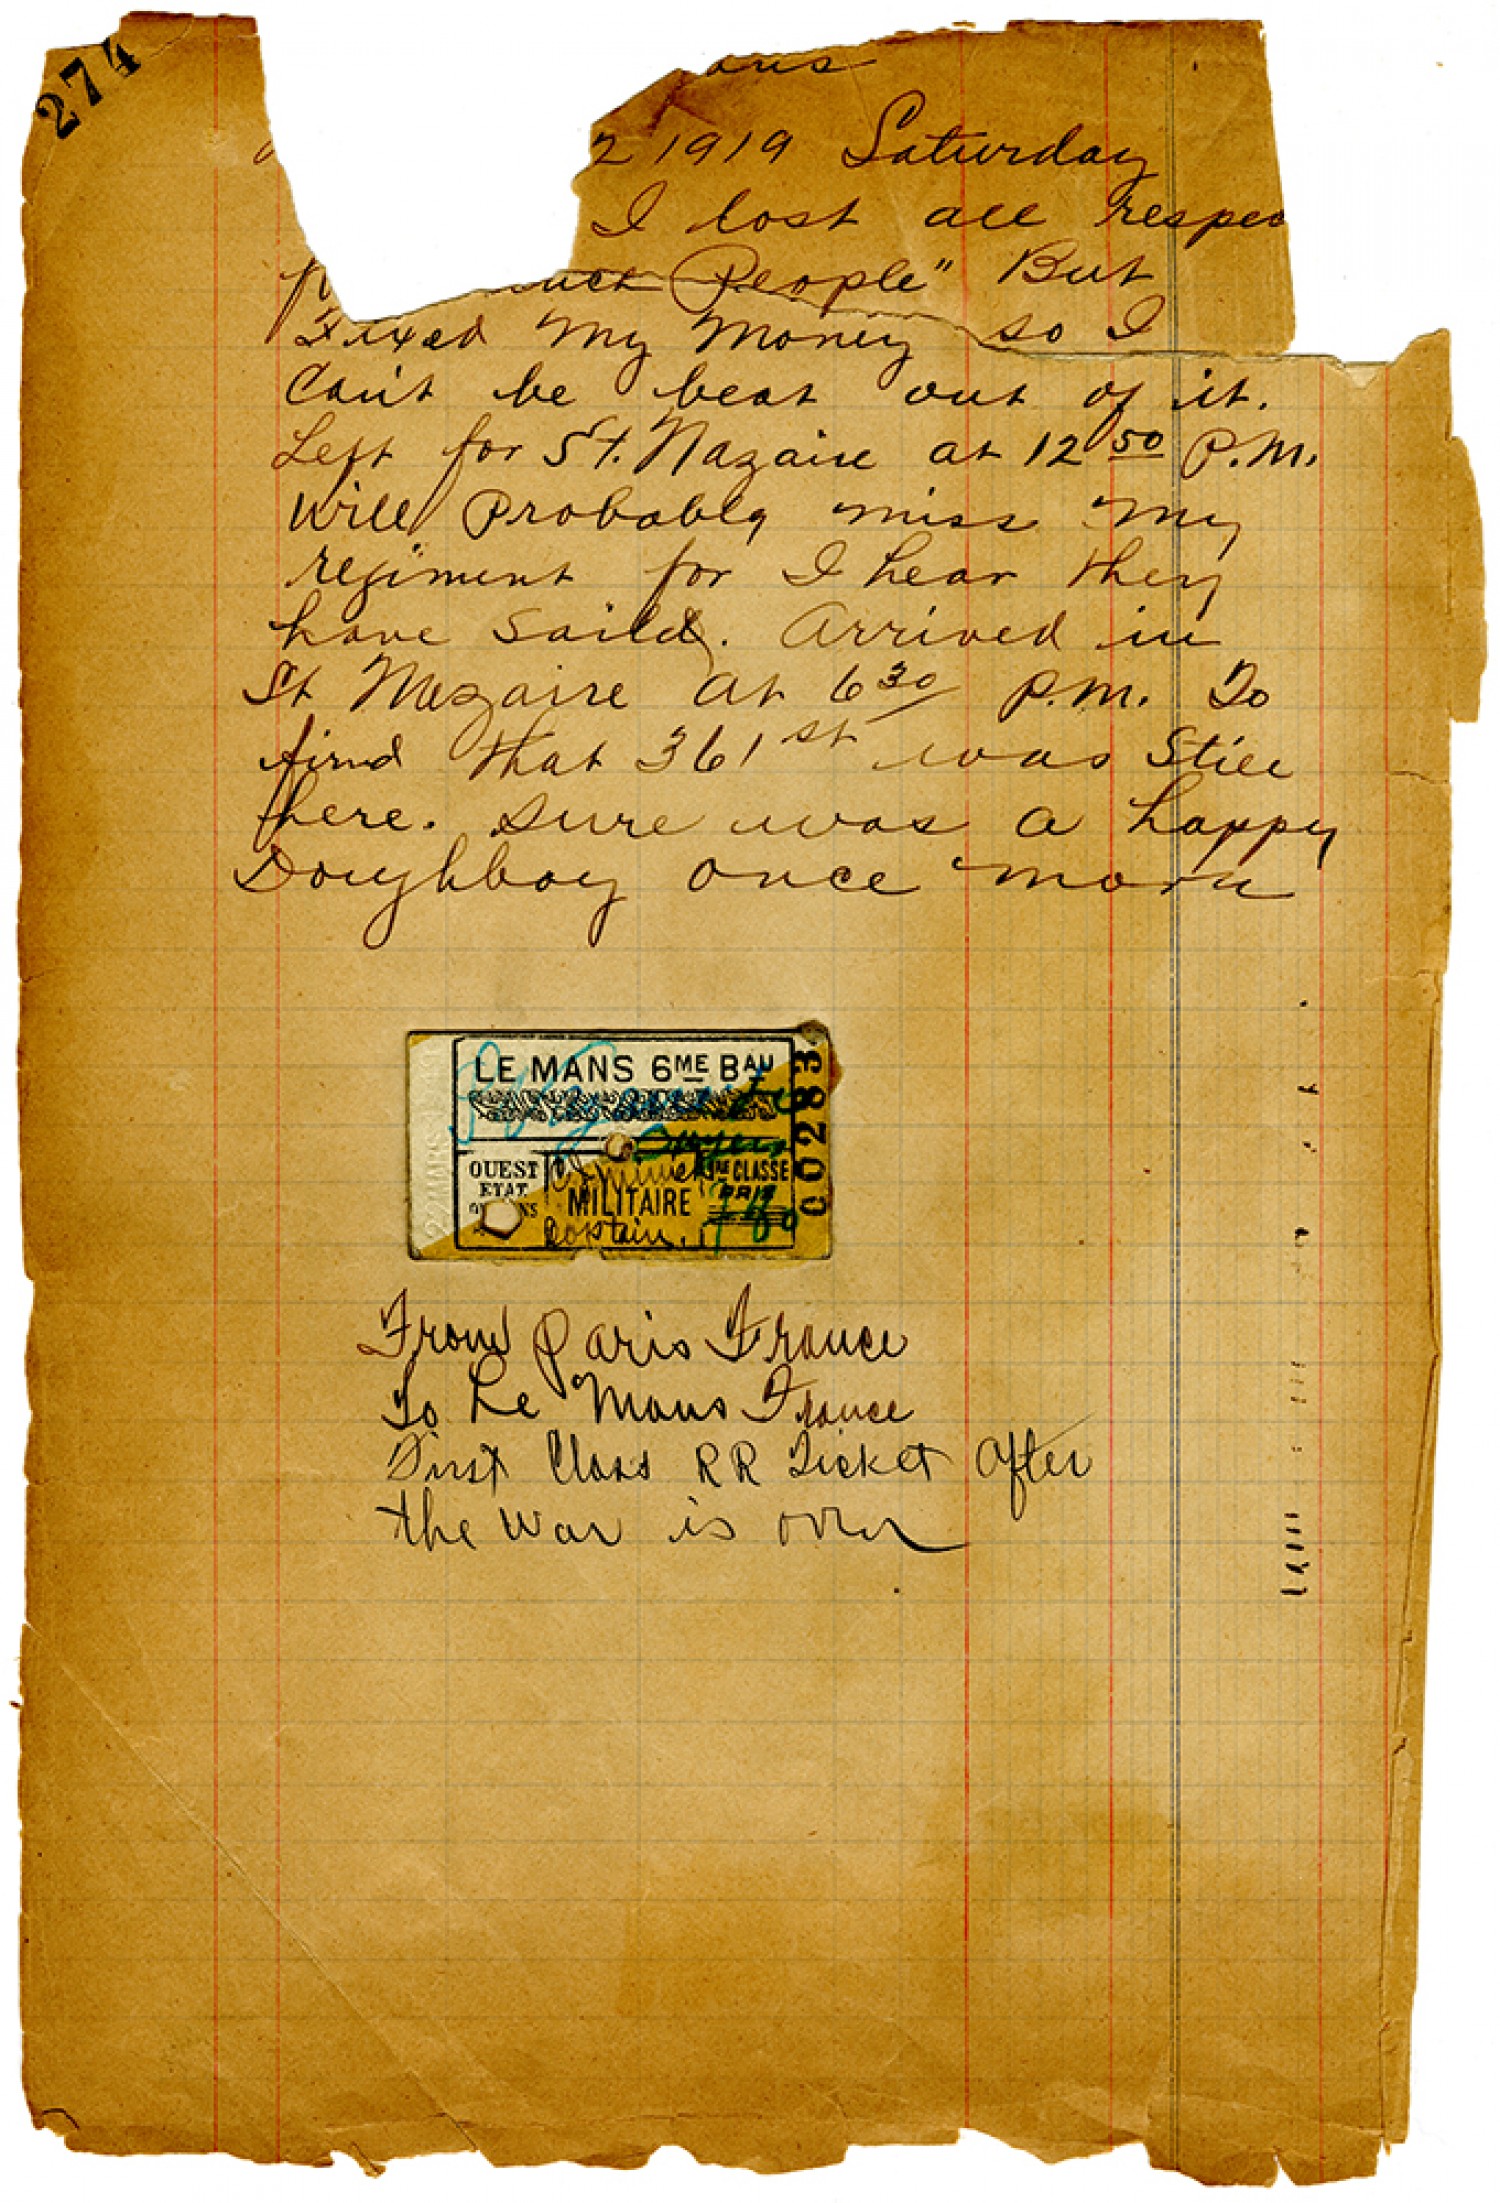 274
2 1919 Saturday
I lost all respec
People" But
Fixed My Money so I
Can't be beat out of it.
Left for St. Nazaire at 12 50 P.M.
Will Probably miss my
regiment for I hear they
have saild. Arrived in
St Nezaire at 6 30 P.M. To
find that 361st was Still
here. Sure was a happy
Doughboy once more
LE MANS 6ME BAU
OUEST
ETAT
CLASSE
MILITAIRE
Captain.
00283
22 MARS
From Paris France
To Le Mans France
First Class RR Ticket After
the War is over